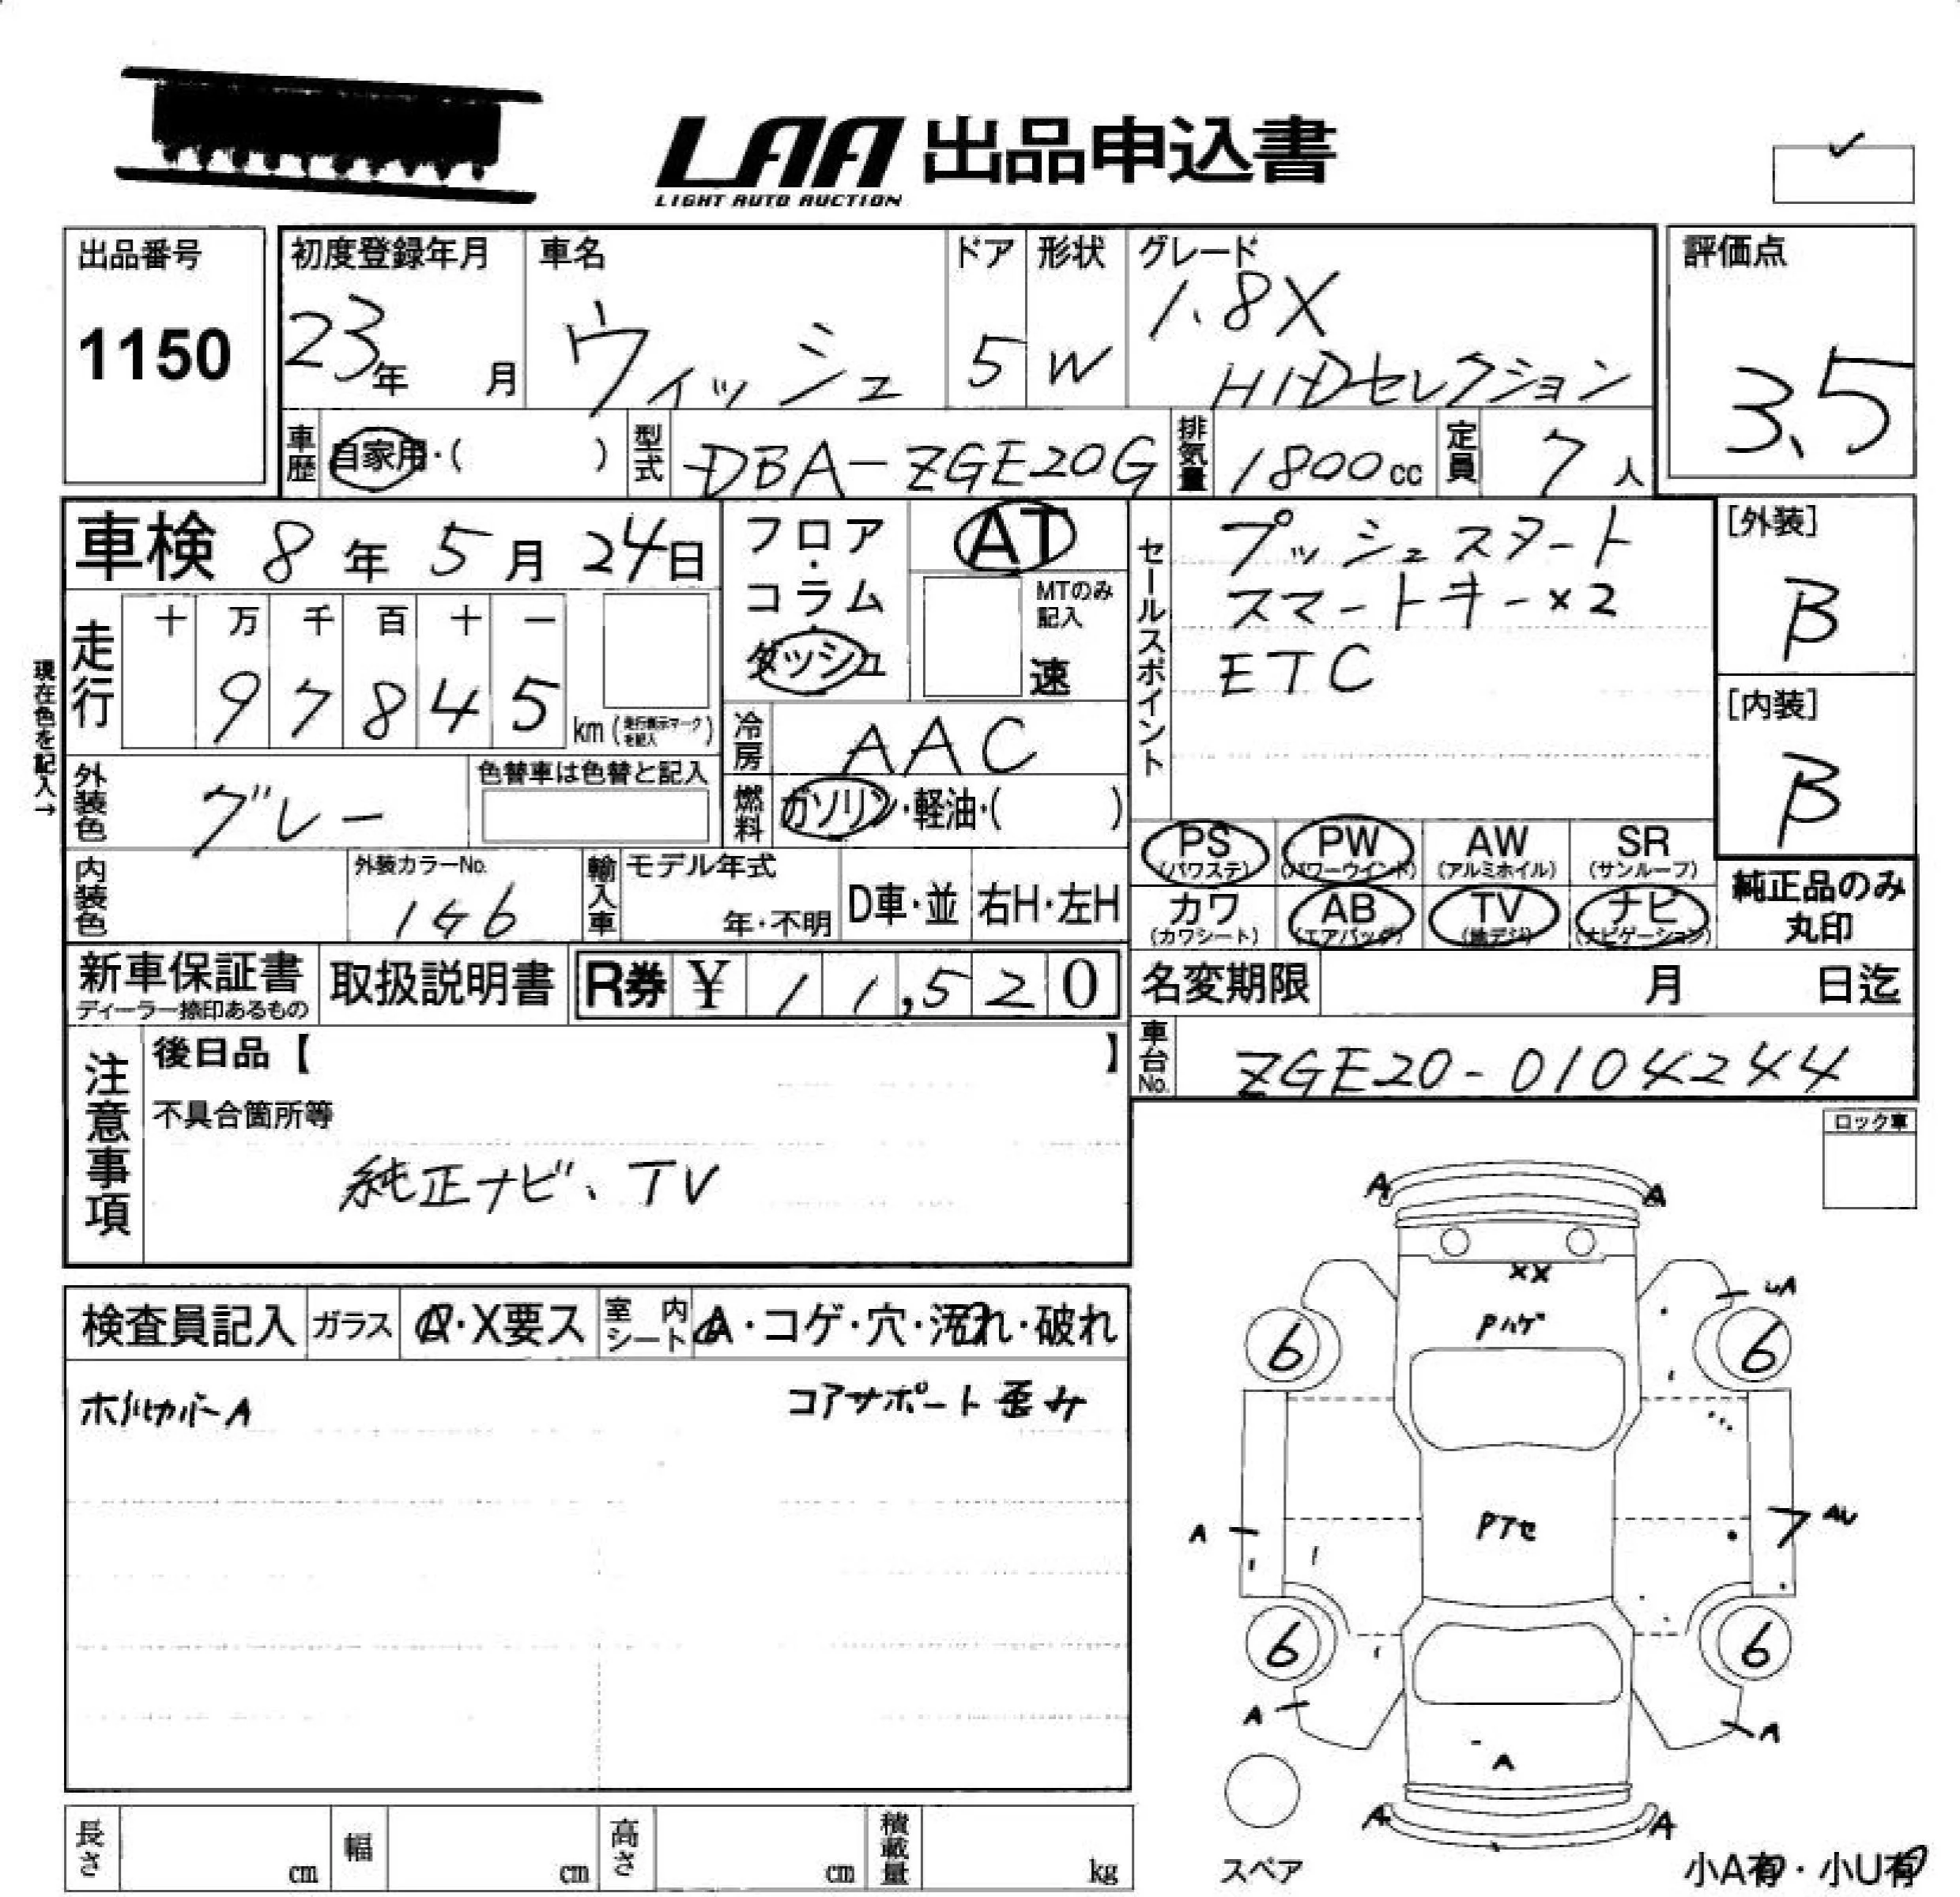 LAA 出品申込書
LIGHT AUTO AUCTION
出品番号
1150
初度登録年月
23年 月
車名
ウィッシュ
ドア
5
形状
W
グレード
1.8X
HIDセレクション
評価点
3.5
車歴
自家用・( )
型式
DBA-ZGE20G
排気量
1800cc
定員
7人
車検 8年 5月 24日
フロア・コラム・ダッシュ
AT
MTのみ記入
速
セールスポイント
プッシュスタート
スマートキー×2
ETC
[外装]
B
[内装]
B
現在色を記入→
走行
十 万 千 百 十 一
9 7 8 4 5
km (走行表示マークを記入)
冷房
AAC
外装色
グレー
色替車は色替と記入
燃料
ガソリン・軽油・( )
PS (パワステ)
PW (パワーウインド)
AW (アルミホイル)
SR (サンルーフ)
カワ (カワシート)
AB (エアバッグ)
TV (地デジ)
ナビ (ナビゲーション)
純正品のみ丸印
内装色
外装カラーNo.
1G6
輸入車
モデル年式
年・不明
D車・並
右H・左H
新車保証書
ディーラー捺印あるもの
取扱説明書
R券 ¥ 11,520
名変期限 月 日迄
車台No.
ZGE20-0104244
注意事項
後日品【 】
不具合箇所等
純正ナビ、TV
ロック車
検査員記入
ガラス
A・X要ス
室内シート
A・コゲ・穴・汚れ・破れ
ホイルカバーA
コアサポート歪み
A A
XX
Pハゲ
UA
6 6
Pアセ
A
AU
6 6
A A
A
A A
スペア
小A有・小U有
長さ cm
幅 cm
高さ cm
積載量 kg